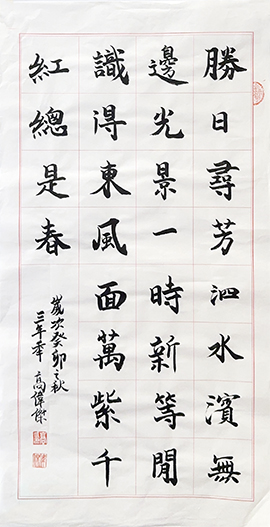 勝日尋芳泗水濱無
邊光景一時新等閒
識得東風面萬紫千
紅總是春
歲次癸卯之秋
三年華 高偉傑